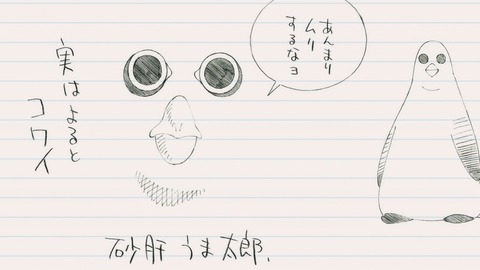 実はよると
コワイ
あんまり
ムリ
するなヨ
砂肝 うま太郎、